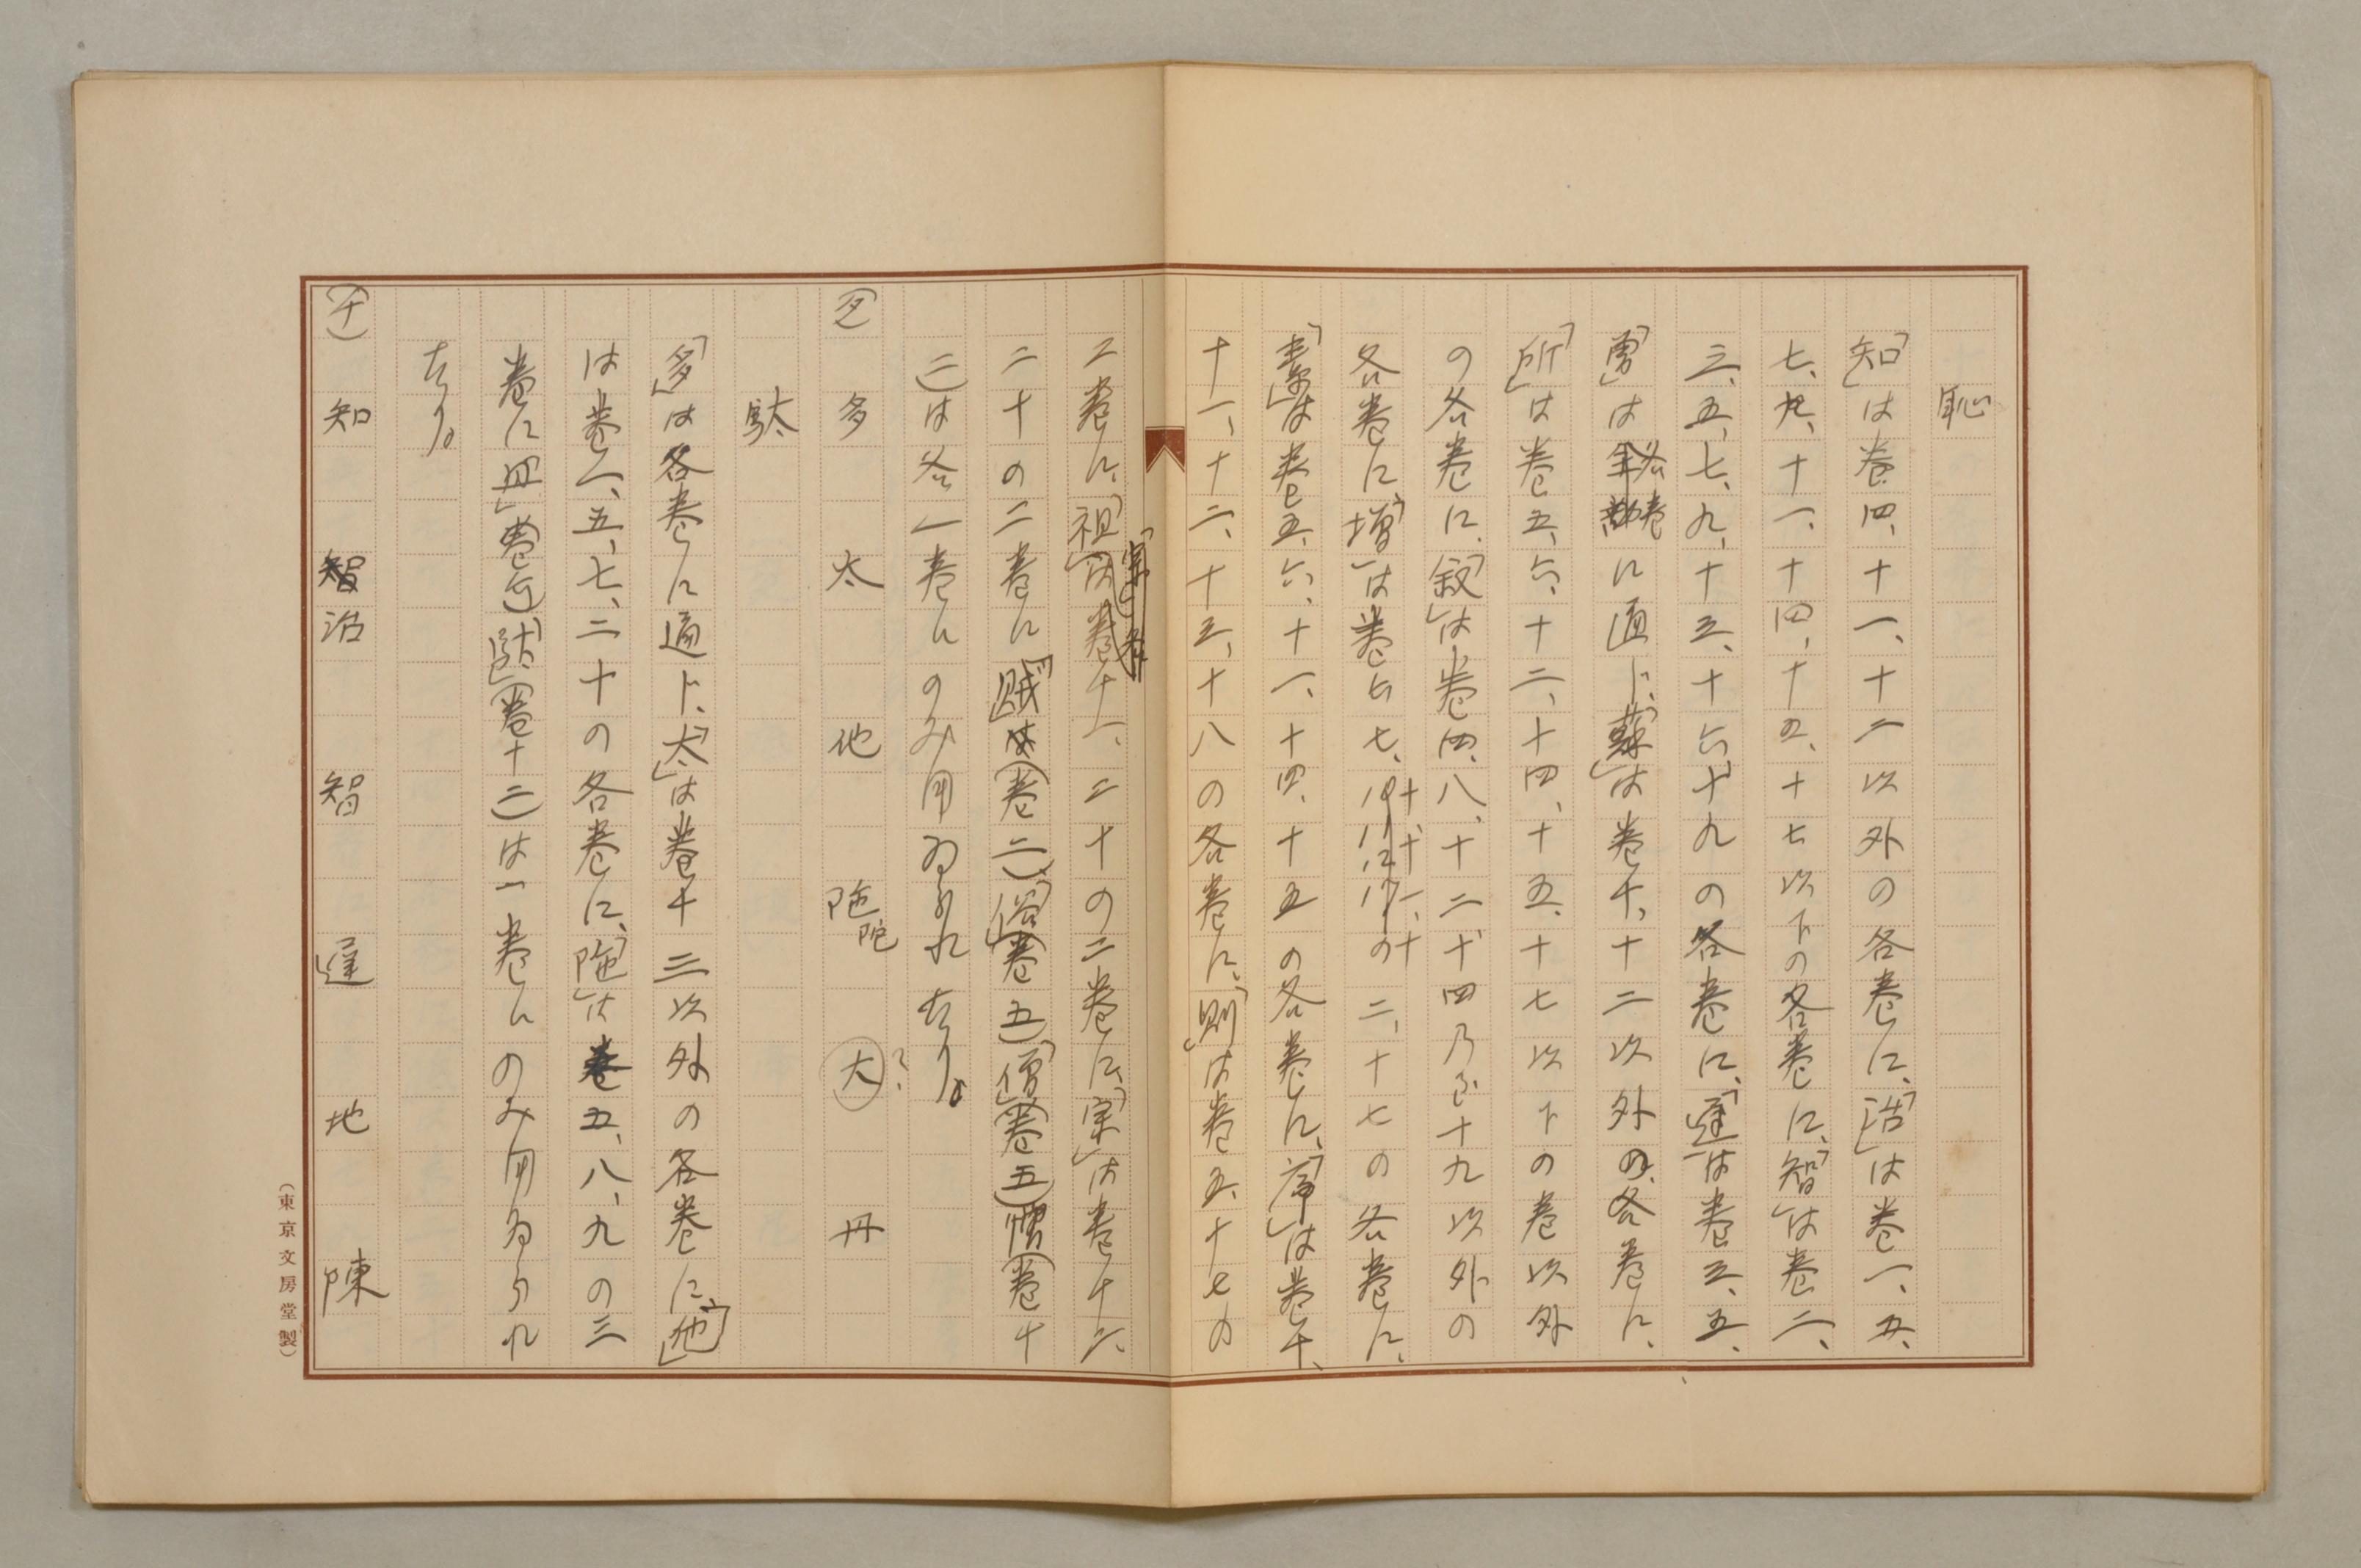 恥
「知」は巻四、十一、十二以外の各巻に、「治」は巻一、五、
七、九、十一、十四、十五、十七以下の各巻に、「智」は巻二、
三、五、七、九、十三、十六、十九の各巻に、「遅」は巻三、五、
は各巻に通ト、「蘇」は巻十、十二以外の各巻に、
「所」は巻五、六、十二、十四、十五、十七以下の巻以外
の各巻に、「叙」は巻四、八、十二、十四乃至十九以外の
各巻に「増」は巻六、七、十、十一、十二、十七の各巻に、
「素」は巻五、六、十一、十四、十五の各巻に、「序」は巻十、
十一、十二、十三、十八の各巻に、「則」は巻五、十七の
二巻に、「祖」は巻十一、二十の二巻に、「宗」は巻十六、
二十の二巻に「賊」(巻二)「俗」(巻五)「僧」(巻五)「憎」(巻十
二)は各一巻にのみ用ゐられたり。
(タ) 多 太 他 陁 陀 大? 丹
駄
「多」は各巻に通ト、「太」は巻十三以外の各巻に、「他」
は巻一、五、七、二十の各巻に、「陁」は巻五、八、九の三
巻に「丹」(巻五)、「駄」(巻十二)は一巻にのみ用ゐられ
たり。
(チ) 知 治 智 遅 地 陳
(東京文房堂製)